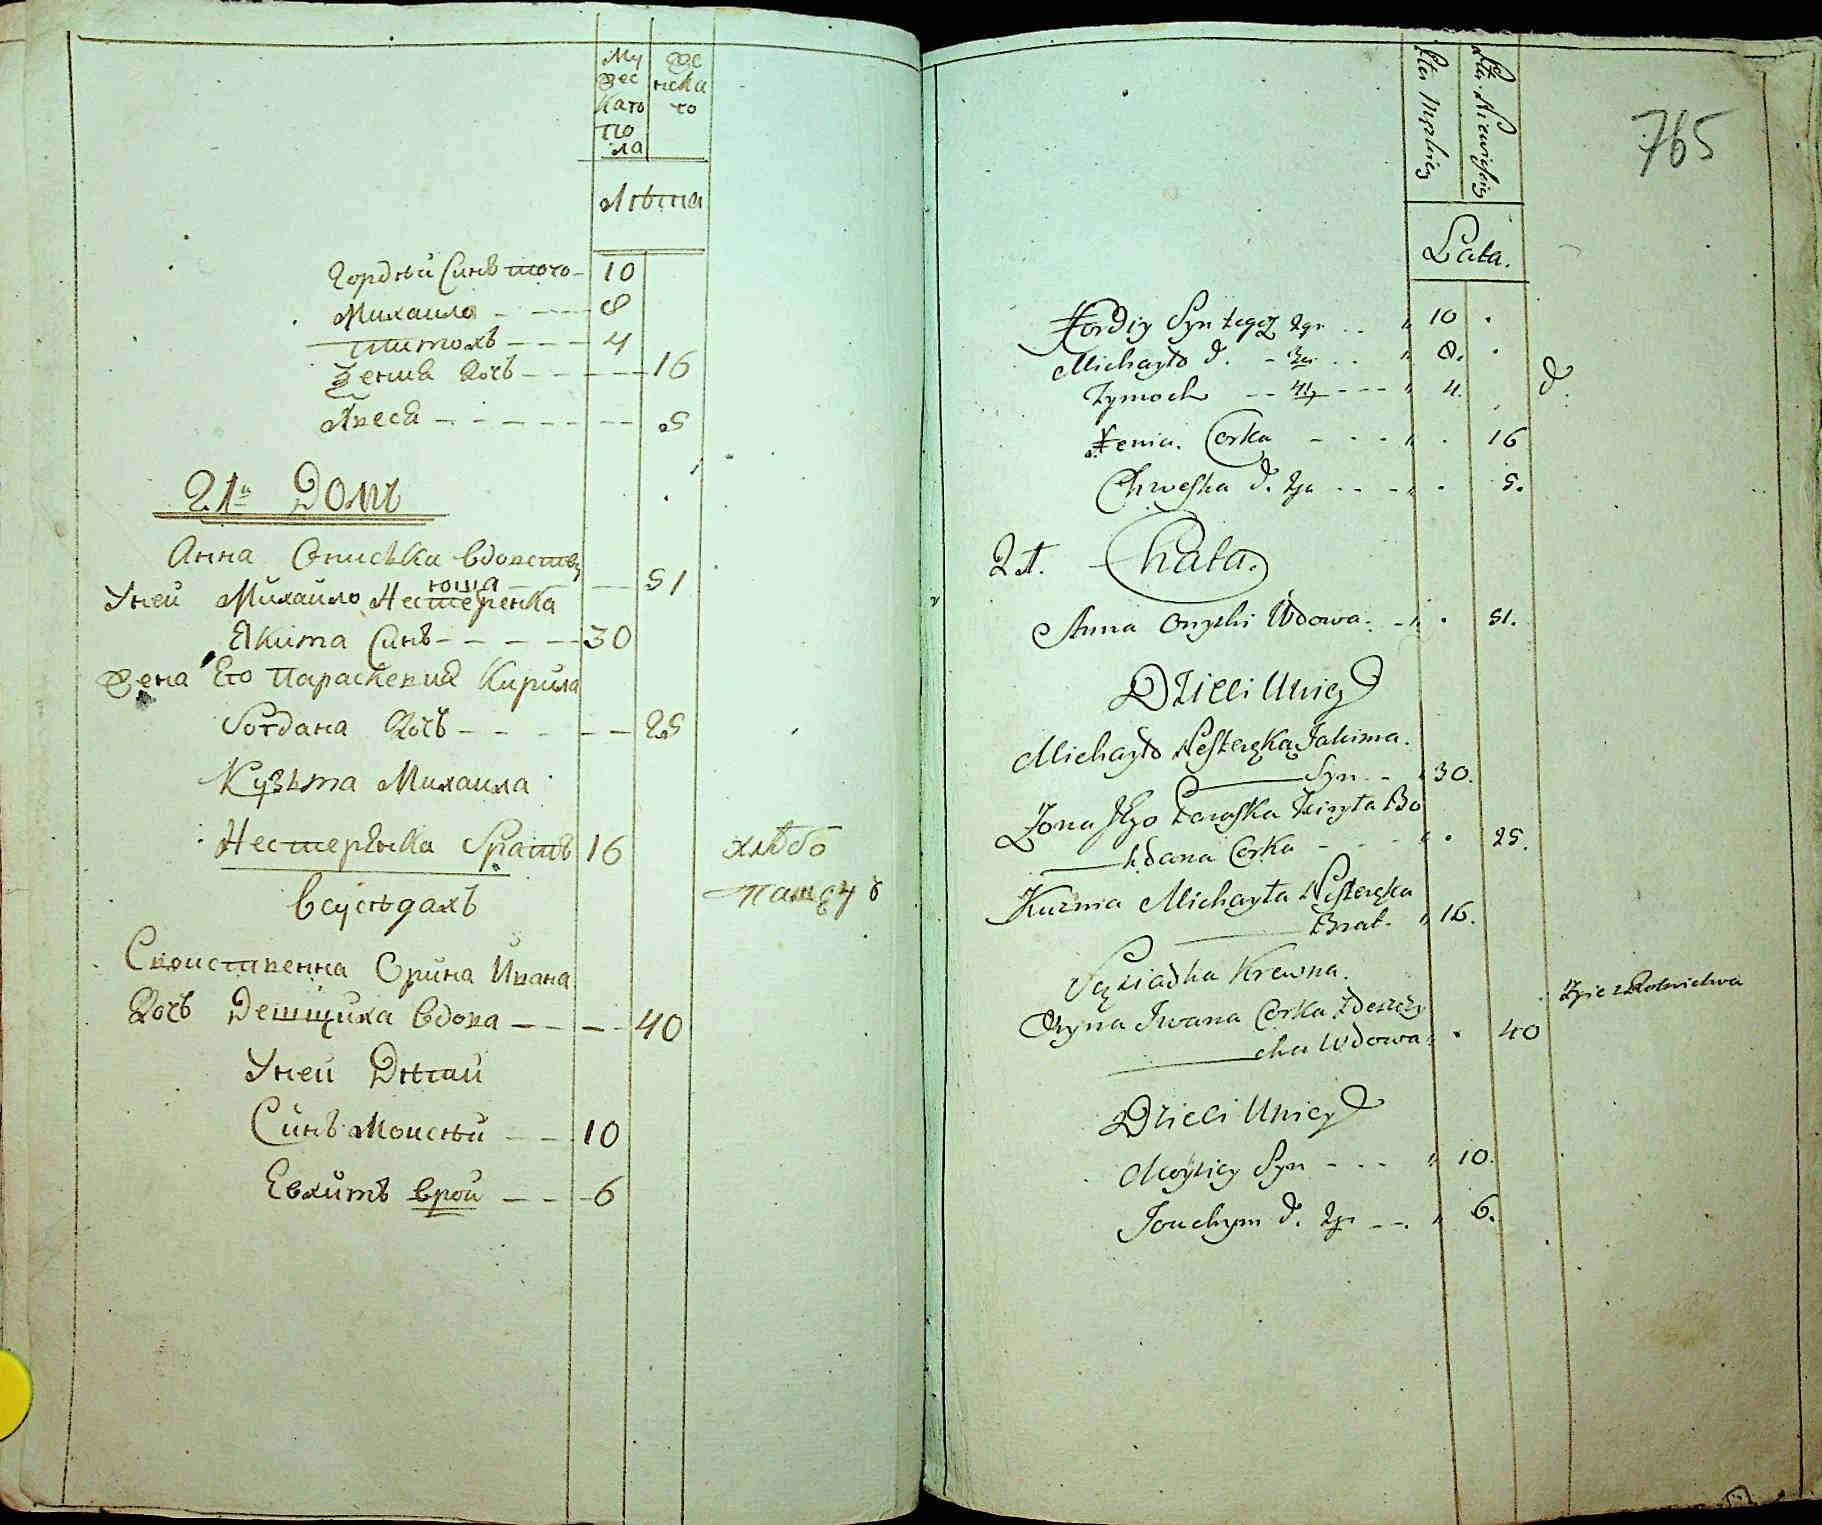 Му
жес
каго
по
ла
же
нска
го
Лѣта
Гордѣй Синъ того 10
Михаило 8
Тимохъ 4
Ѯения Дочь 16
Хвеся 5
21й Домъ
Анна Ониська вдовст
юща 51
Уней Михаило Нестеренка
Якима Синъ 30
жена Его Параскевия Кирила
Богдана Дочь 25
Кузьма Михаила
Нестерѣнка братъ 16
хлѣбо
пашецъ
всусѣдахъ
Своиственна Орина Ивана
Дочь Дещиха вдова 40
Уней Дѣтей
Синъ Моисѣй 10
Евхимъ врой 6
765
Lata.
Hordiy Syn tegoż 10
Michayło d. 8.
Tymoch 4.
d.
Xenia. Corka 16
Chweska d. 5.
21. Chata.
Anna Onyski Wdowa 51.
Dzieci Uniey
Michayło Nesteręka Jakima.
Syn 30.
Zona Jego Paraska Kiryła Bo
hdana Corka 25.
Kuzma Michayła Nesteręka
Brat. 16.
Sąsiadka Krewna.
Żyie z Rolnictwa
Oryna Jwana Corka Deszczy
cha Wdowa 40
Dzieci Uniey
Moysiey Syn 10.
Jouchym d. 6.